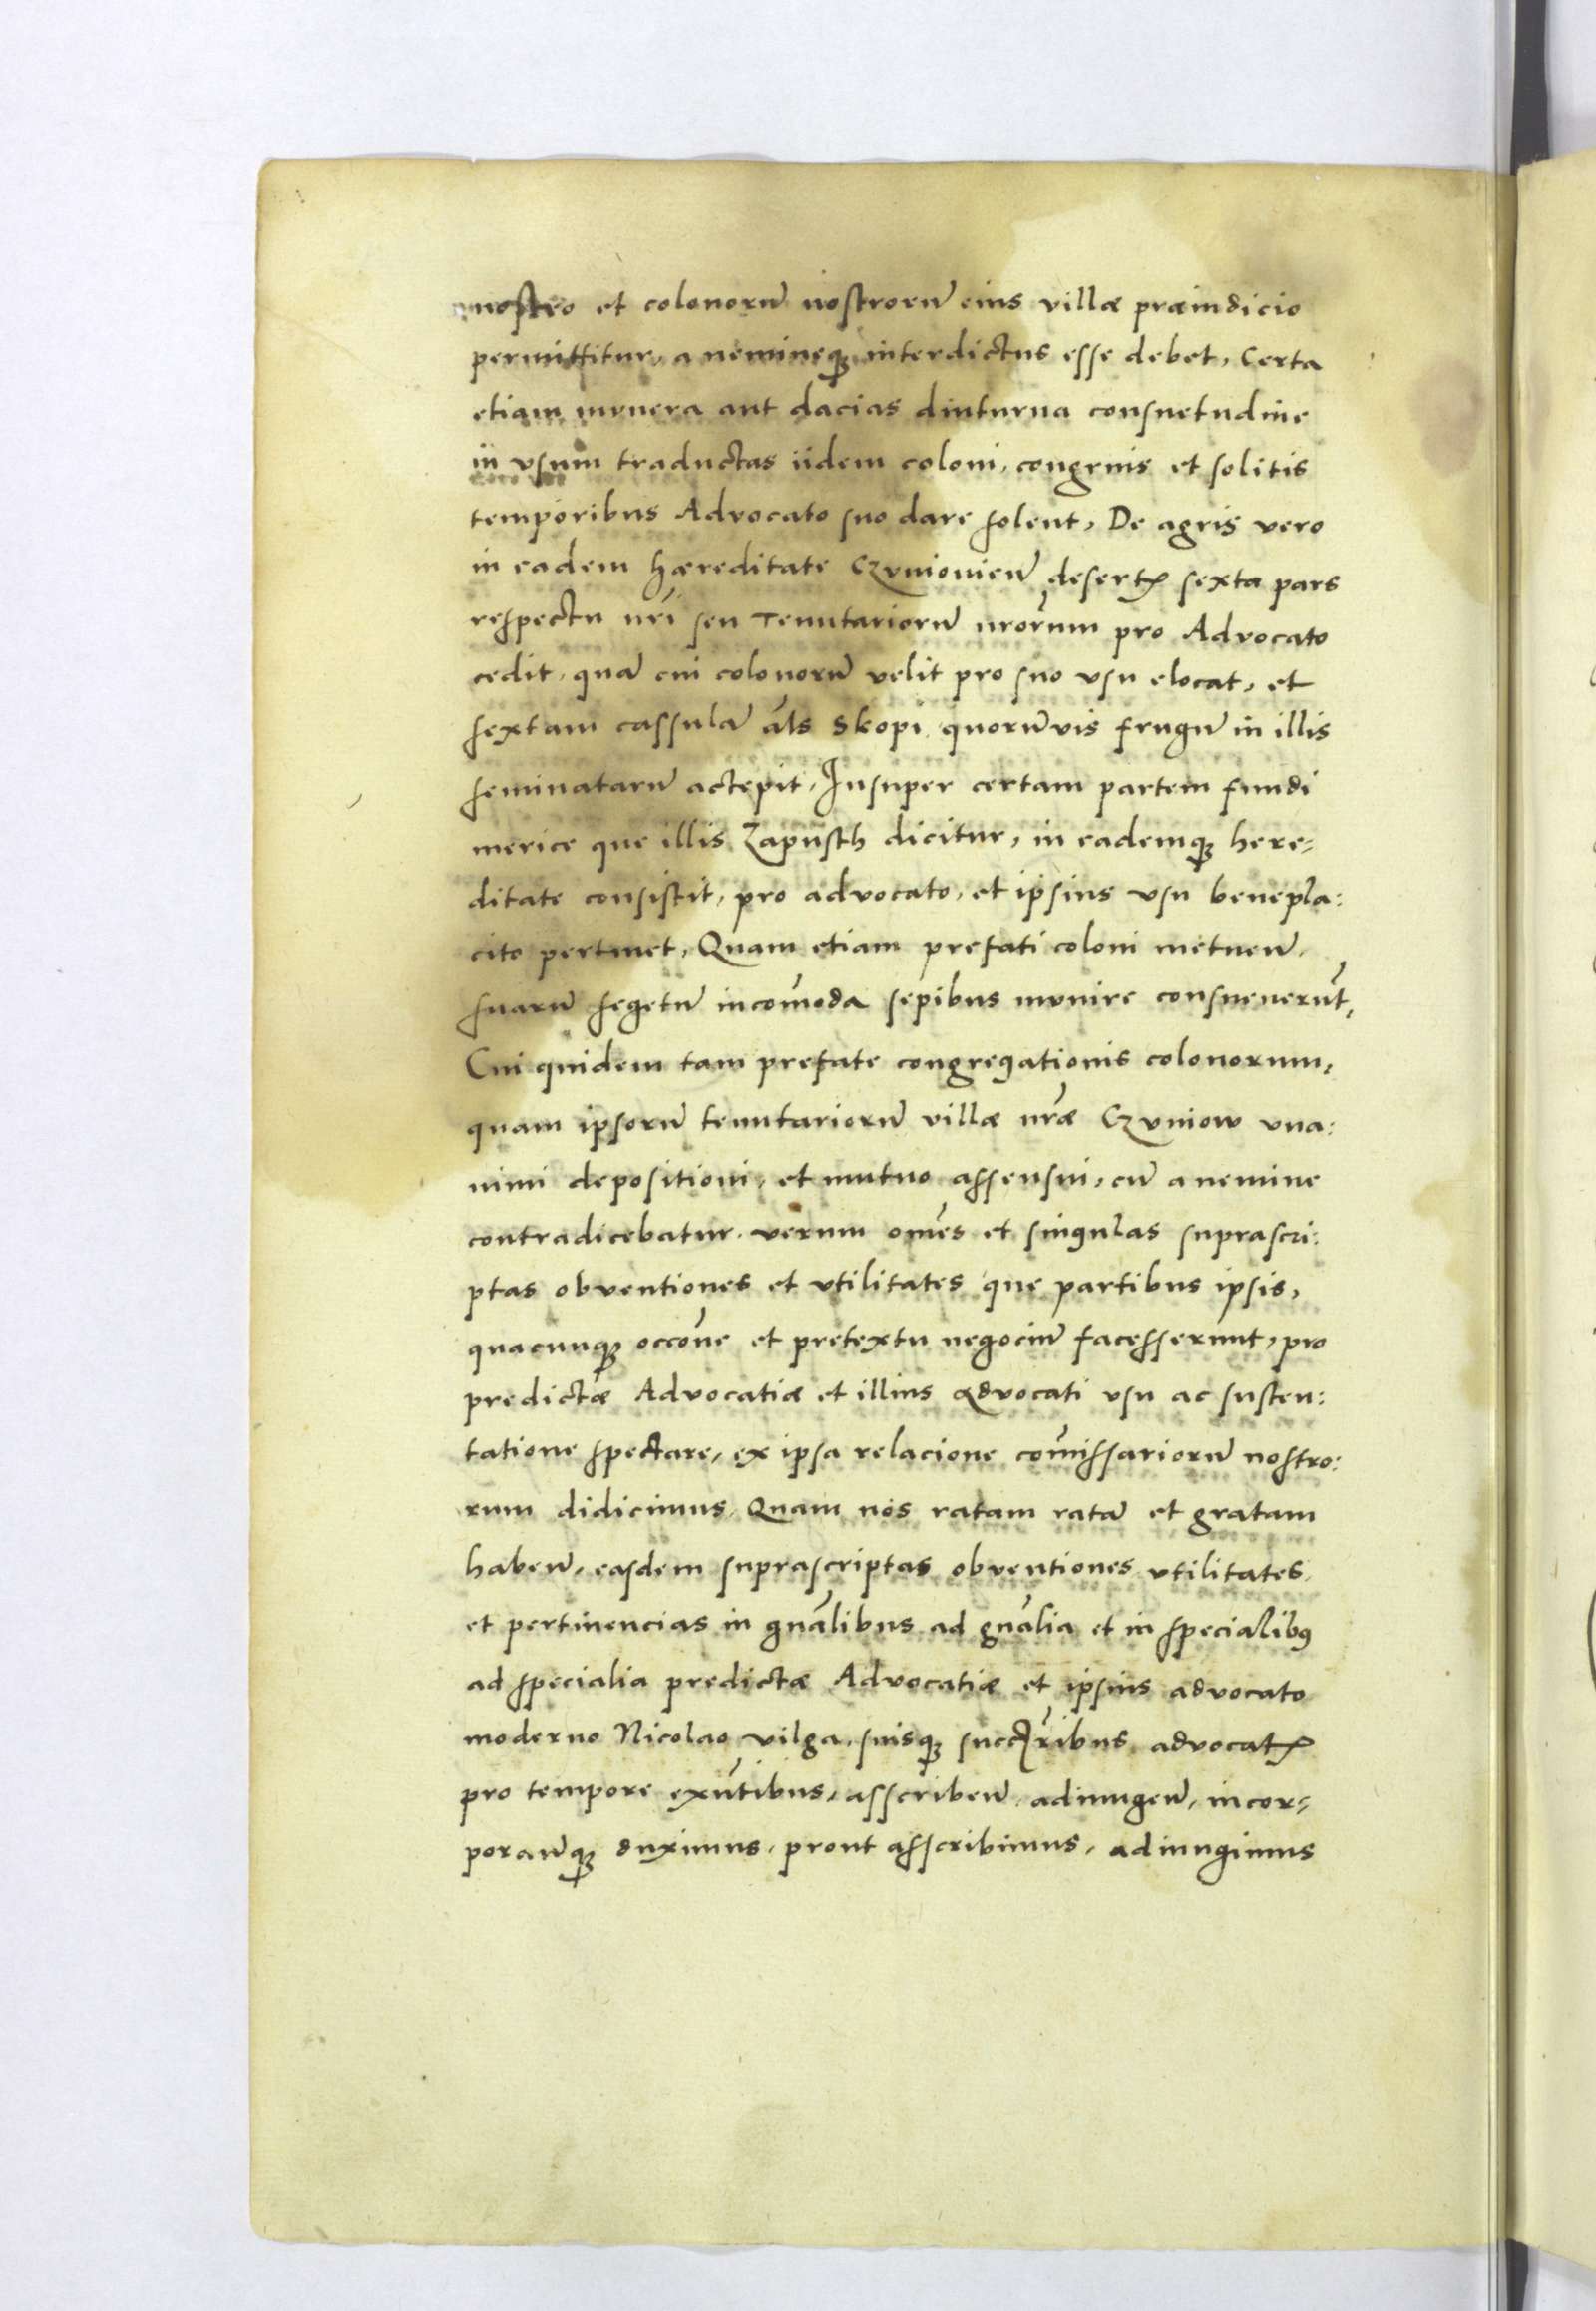 nostro et colonorū nostrorū eius villæ præiudicio
permittitur, a nemineqȝ interdictus esse debet, Certa
etiam munera aut dacias diuturna consuetudine
in vsum traductas iidem coloni, congruis et solitis
temporibus Advocato suo dare solent, De agris vero
in eadem hæreditate Czvnioviēn desertꝭ sexta pars
respectu nr̄i seu Tenutariorū nrōrum pro Advocato
cedit, quā cui colonorū velit pro suo vsu elocat, et
sextam cassulā al̄s Skopi quorūvis frugū in illis
seminatarū accepit, Insuper certam partem fundi
merice que illis Zapusth dicitur, in eademqȝ here-
ditate consistit, pro advocato, et ipsius vsu benepla:
cito pertinet, Quam etiam prefati coloni metueñ.
suarū segetū incom̄oda sepibus mvnire consueuerūt,
Cui quidem tam prefate congregationis colonorum,
quam ipsorū tenutariorū villæ nr̄æ Czvniow vna:
nimi depositioni, et mutuo assensui, cū a nemine
contradicebatur. verum om̄es et singulas suprascri:
ptas obventiones et vtilitates que partibus ipsis,
quacunqȝ occōne et pretextu negociū facesserunt, pro
predictæ Advocatiæ et illius advocati vsu ac susten:
tatione spectare, ex ipsa relacione com̄issariorū nostro:
rum didicimus, Quam nos ratam ratā et gratam
habeñ, easdem suprascriptas obventiones vtilitates
et pertinencias in gn̄alibus ad gn̄alia et in specialibꝰ
ad specialia predictæ Advocatiæ et ipsius advocato
moderno Nicolao vilga, suisqȝ succꝭribus advocatꝭ
pro tempore exn̄tibus, asscribeñ, adiungeñ, incor-
porañqȝ duximus, prout asscribimus, adiungimus